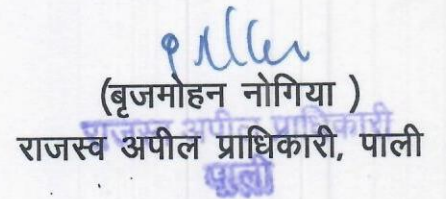 (बृजमोहन नोगिया )
राजस्व अपील प्राधिकारी
राजस्व अपील प्राधिकारी, पाली
पाली